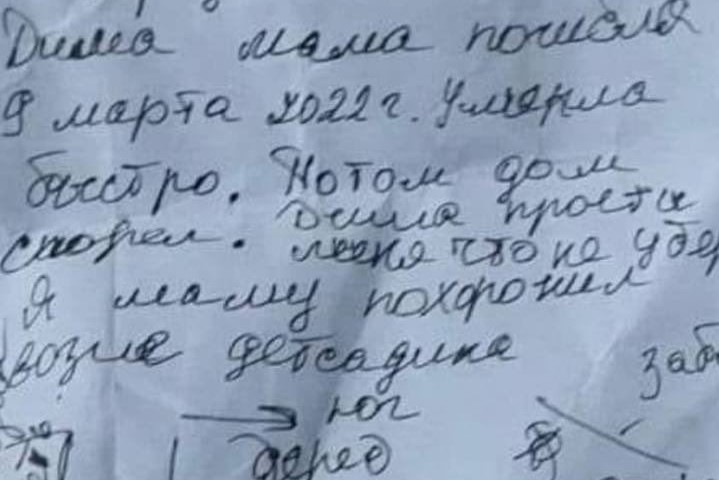 Дима мама погибла
9 марта 2022 г. Умерла
быстро. Потом дом
сгорел. Дима прости
меня что не убер
Я маму похоронил
возле детсадика
заб
→ юг
дерев